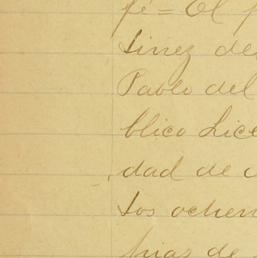 fé = El
tinez de
Pablo del
blico Lice
dad de
los ochen
pias de